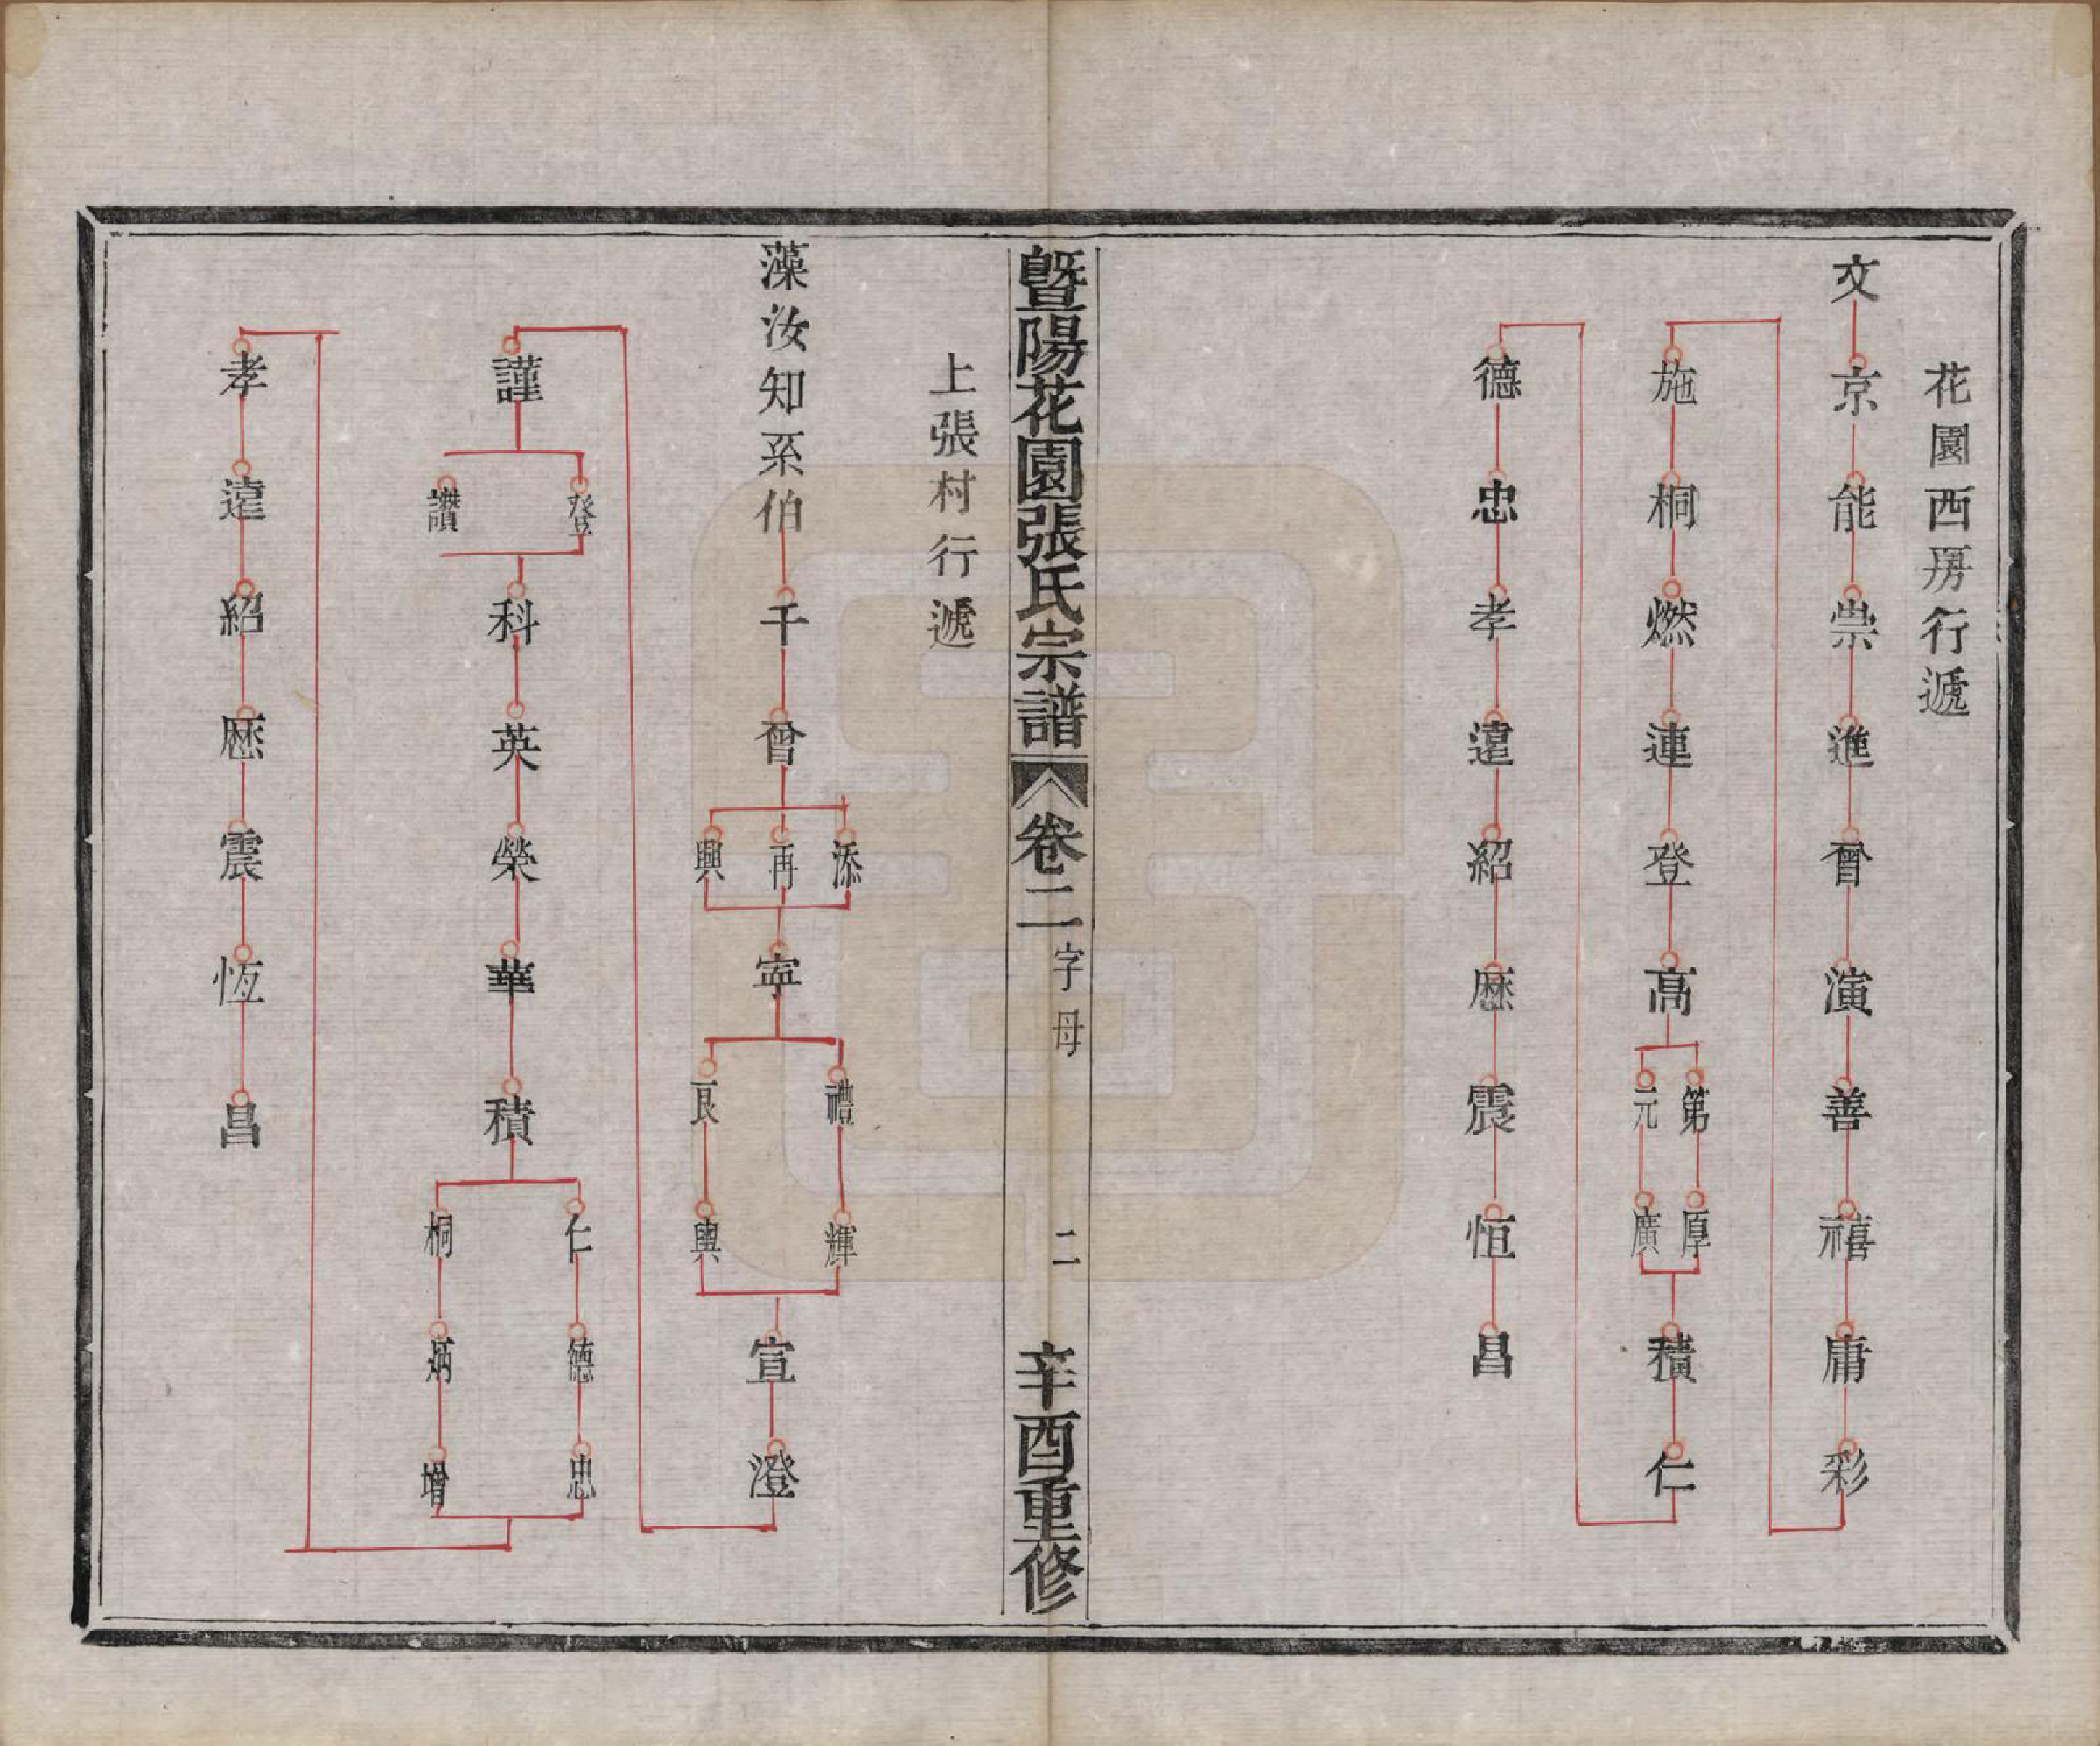 花園西房行遞
文京能崇進曾演善禧庸彩
施桐燃連登高
第厚
元廣
積仁
德忠孝遠紹歷震恒昌
暨陽花園張氏宗譜 卷二 字母 二 辛酉重修
上張村行遞
藻汝知系伯千曾
添
再
興
寧
禮輝
良興
宣澄
謹
登
讚
科英榮華積
仁德忠
桐炳增
孝遠紹歷震恆昌